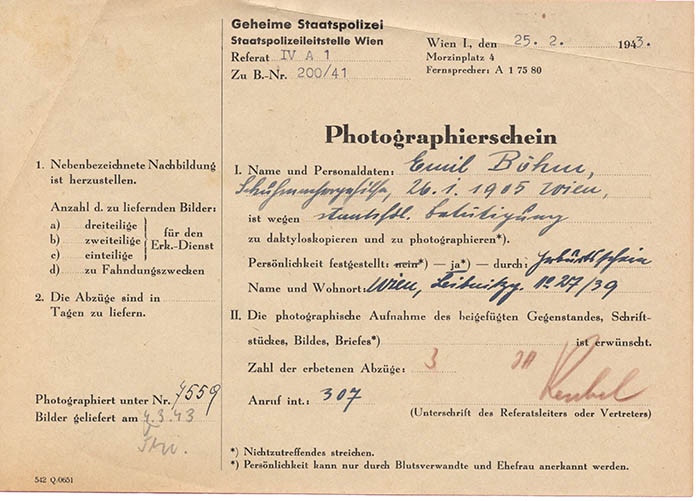 Geheime Staatspolizei
Staatspolizeileitstelle Wien
Referat IV A 1
Zu B.-Nr. 200/41
Wien I., den 25. 2. 1943.
Morzinplatz 4
Fernsprecher: A 1 75 80
Photographierschein
1. Nebenbezeichnete Nachbildung
ist herzustellen.
Anzahl d. zu liefernden Bilder:
a) dreiteilige
b) zweiteilige
c) einteilige
für den
Erk.-Dienst
d) zu Fahndungszwecken
2. Die Abzüge sind in
Tagen zu liefern.
Photographiert unter Nr. 4559
Bilder geliefert am 4.3.43
I. Name und Personaldaten: Emil Böhm,
26. I. 1905 Wien,
ist wegen staatsfdl. Betätigung
zu daktyloskopieren und zu photographieren*).
Persönlichkeit festgestellt: nein*) — ja*) — durch: Geburtsschein
Name und Wohnort: Wien, Leibnizg. No 27/39
II. Die photographische Aufnahme des beigefügten Gegenstandes, Schrift-
stückes, Bildes, Briefes*) ist erwünscht.
Zahl der erbetenen Abzüge: 3
Anruf int.: 307
(Unterschrift des Referatsleiters oder Vertreters)
*) Nichtzutreffendes streichen.
*) Persönlichkeit kann nur durch Blutsverwandte und Ehefrau anerkannt werden.
542 Q/0651